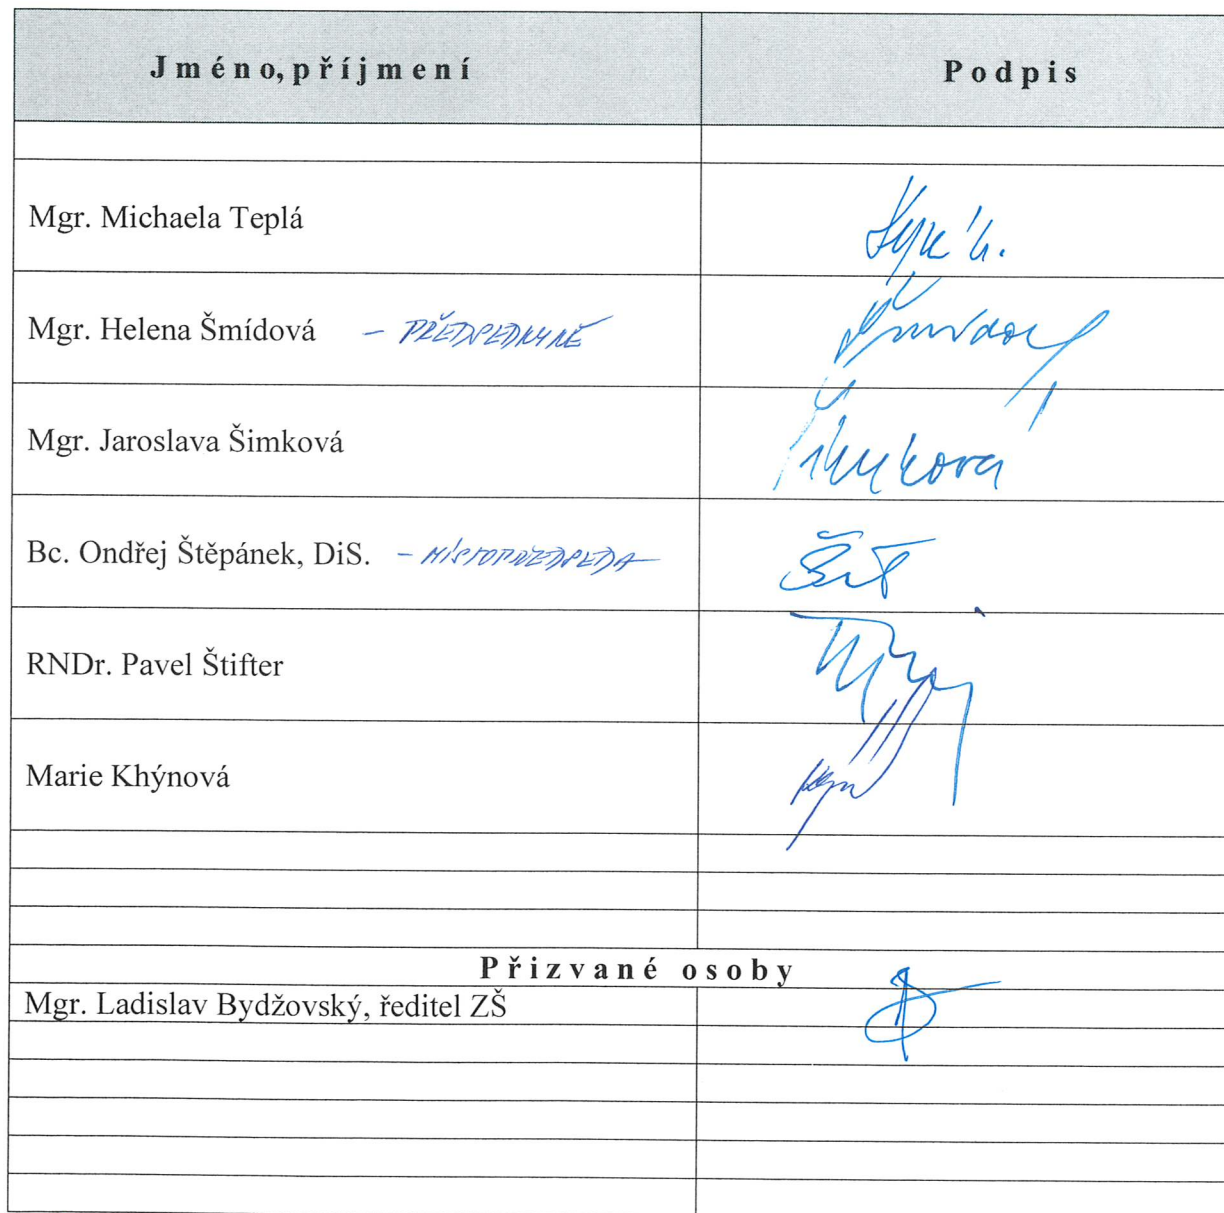 Jméno, příjmení Podpis
Mgr. Michaela Teplá
Mgr. Helena Šmídová – PŘEDSEDKYNĚ Šmídov
Mgr. Jaroslava Šimková Šimková
Bc. Ondřej Štěpánek, DiS. – MÍSTOPŘEDSEDA
RNDr. Pavel Štifter
Marie Khýnová
Přizvané osoby
Mgr. Ladislav Bydžovský, ředitel ZŠ